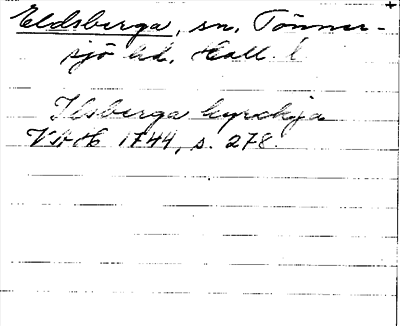 Eldsberga, sn, Tönner-
sjö hd. Hall. l
Ilsberga kyrckja
VAH 1744, s. 278.